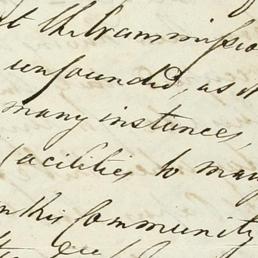 the transmission
unfounded, as it
many instances,
facilities to many
in this Community